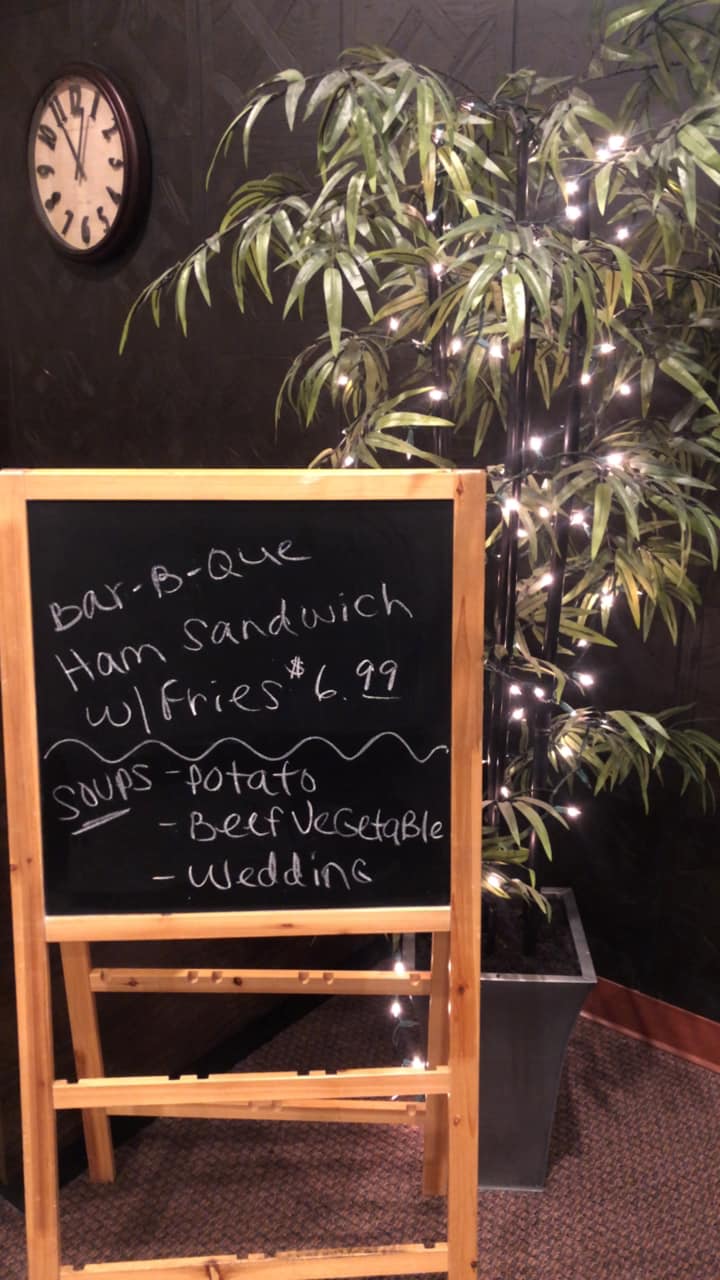 Bar-B-Que
Ham Sandwich
w/Fries $6.99
SOUPS - Potato
- Beef VeGetaBle
- Wedding
12
1
2
3
4
5
6
7
8
9
10